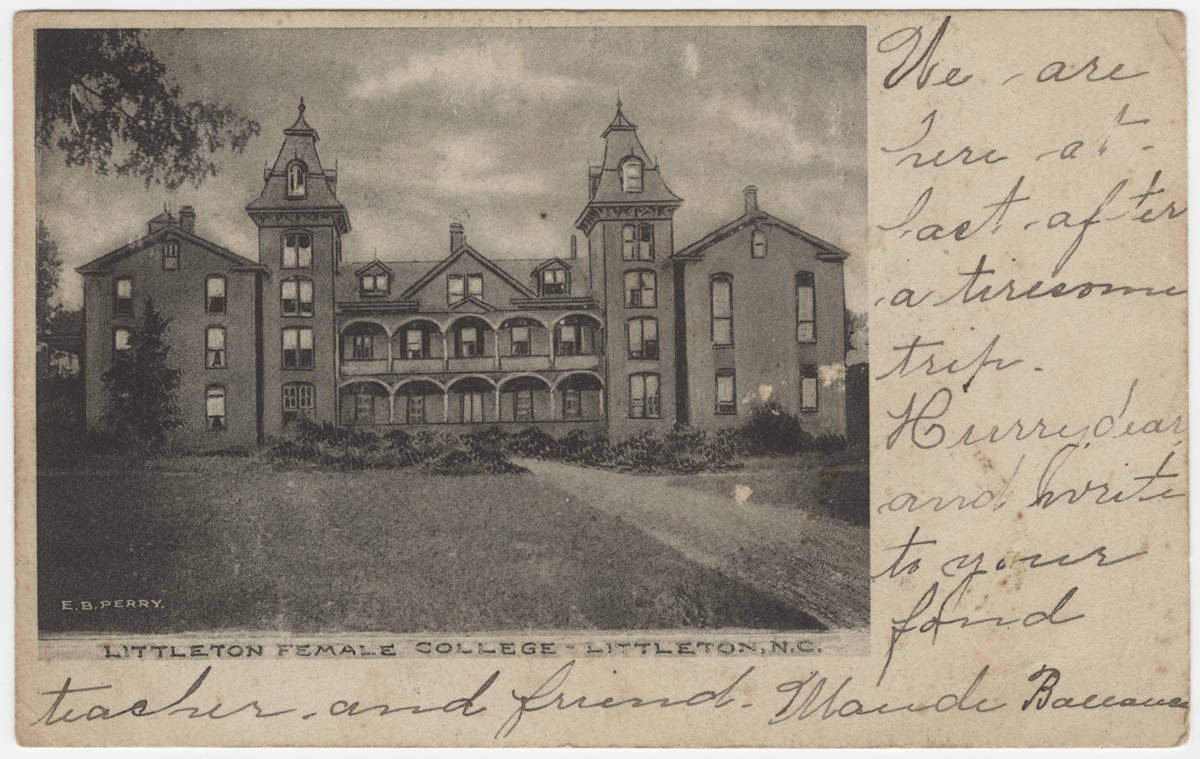 We are
here at
last after
a tiresome
trip.
Hurry, dear,
and write
to your
fond
teacher and friend. Maude
E.B.PERRY.
LITTLETON FEMALE COLLEGE - LITTLETON, N.C.